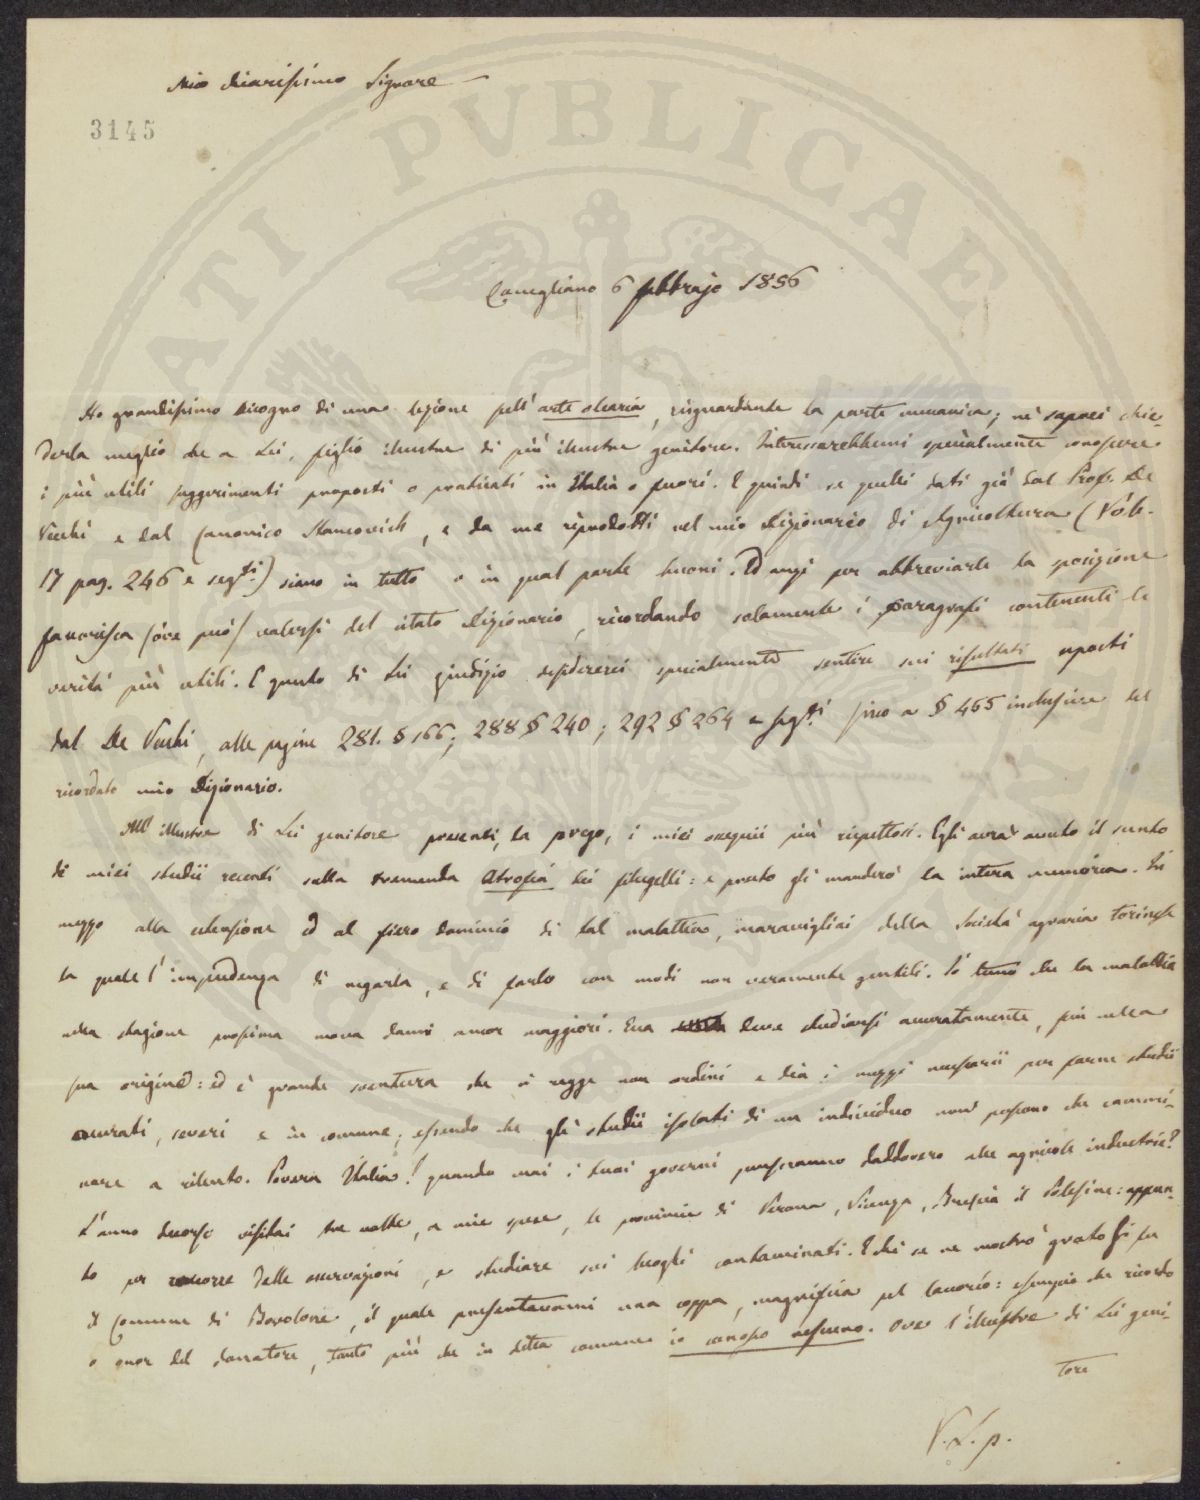 Mio chiarissimo Signore
3145
Conegliano 6 febbrajo 1856
Ho grandissimo bisogno di una lezione sull'arte olearia, risguardante la parte mecanica; nè saprei chie-
derla meglio che a Lei, figlio illustre di più illustre genitore. Interessarebbemi specialmente conoscere
i più utili suggerimenti proposti o praticati in Italia o fuori. E quindi se quelli dati già dal Prof. De
Vecchi e dal Canonico Stancovich, e da me riprodotti nel mio Dizionario di Agricoltura (Vol.
17 pag. 246 e segti) siano in tutto o in qual parte buoni. Ed anzi per abbreviarle la sposizione
favorisca (ove può) valersi del citato Dizionario, ricordando solamente i paragrafi contenenti le
verità più utili. E questo di Lei giudizio desidererei specialmente sentire sui risultati esposti
dal De Vecchi, alle pagine 281. § 166; 288 § 240; 292 § 264 e segti fino a § 465 inclusive del
ricordato mio Dizionario.
All'illustre di Lei genitore presenti, la prego, i miei ossequii più rispettosi. Egli avrà avuto il sunto
di miei studii recenti sulla tremenda Atrofia dei filugelli: e presto gli manderò la intera memoria. In
mezzo alla estensione ed al fiero dominio di tal malattia, maravigliai della Società agraria torinese
la quale l'impudenza di negarla, e di farlo con modi non veramente gentili. Io temo che la malattia
nella stagione prossima mova danni ancor maggiori. Essa deve studiarsi accuratamente, fin nella
sua origine: ed è grande sventura che chi regge non ordini e dia i mezzi necessarii per farne studii
accurati, severi e in comune; essendo che gli studii isolati di un individuo non possono che cammi-
nare a rilento. Povera Italia! quando mai i tuoi governi penseranno daddovero alle agricole industrie?
L'anno decorso visitai tre volte, a mie spese, le provincie di Verona, Vicenza, Brescia il Polesine: appun-
to per raccorre delle osservazioni, e studiare sui luoghi contaminati. E chi se ne mostrò grato si fu
il Comune di Bovolone, il quale presentavami una coppa, magnifica pel lavorio: esempio che ricordo
a onor del donatore, tanto più che in detta comune io conosco nessuno. Ove l'illustre di Lei geni-
tore
V.S.p.